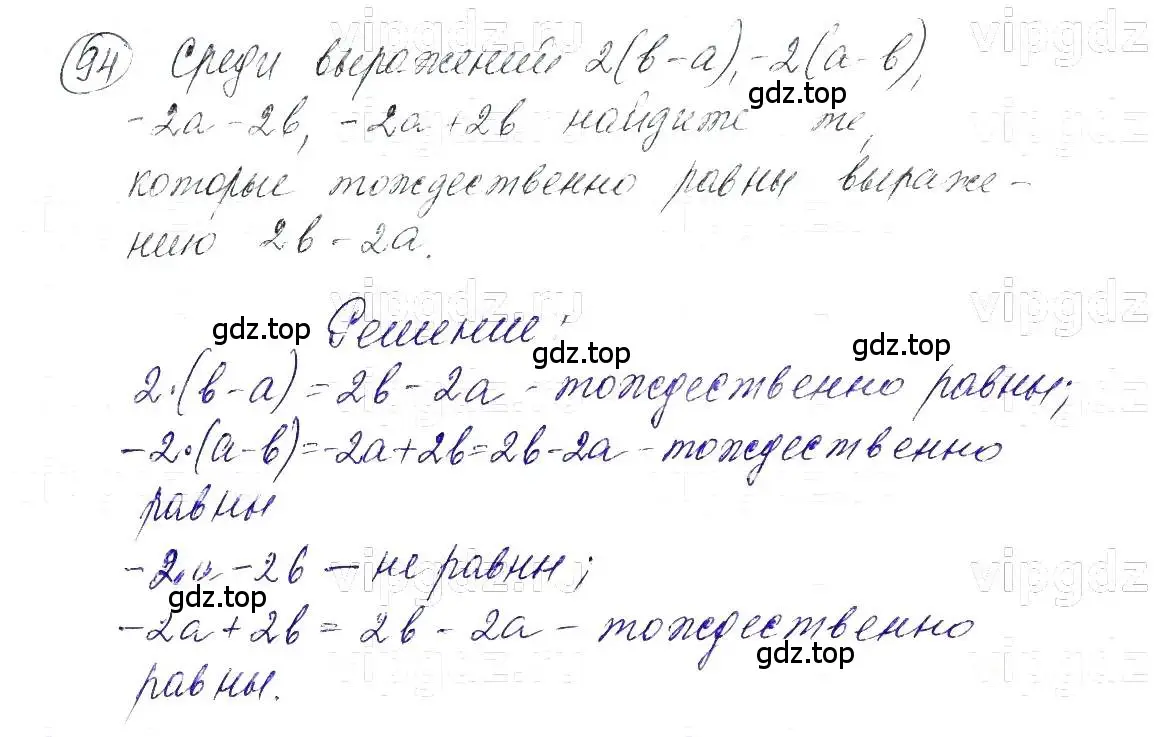 vipgdz.ru vipgdz
94 Среди выражений 2(в-а), -2(а-в),
gdz.top
-2а-2в, -2а+2в найдите те,
которые тождественно равны выраже-
нию 2в-2а.
vipgdz.ru vipgdz
gdz.top Решение: gdz.top
2·(в-а)=2в-2а - тождественно равны;
-2·(а-в)=-2а+2в=2в-2а - тождественно
равны
vipgdz.ru vipgdz
-2а-2в - не равны;
gdz.top
-2а+2в=2в-2а - тождественно
gdz.top
равны.